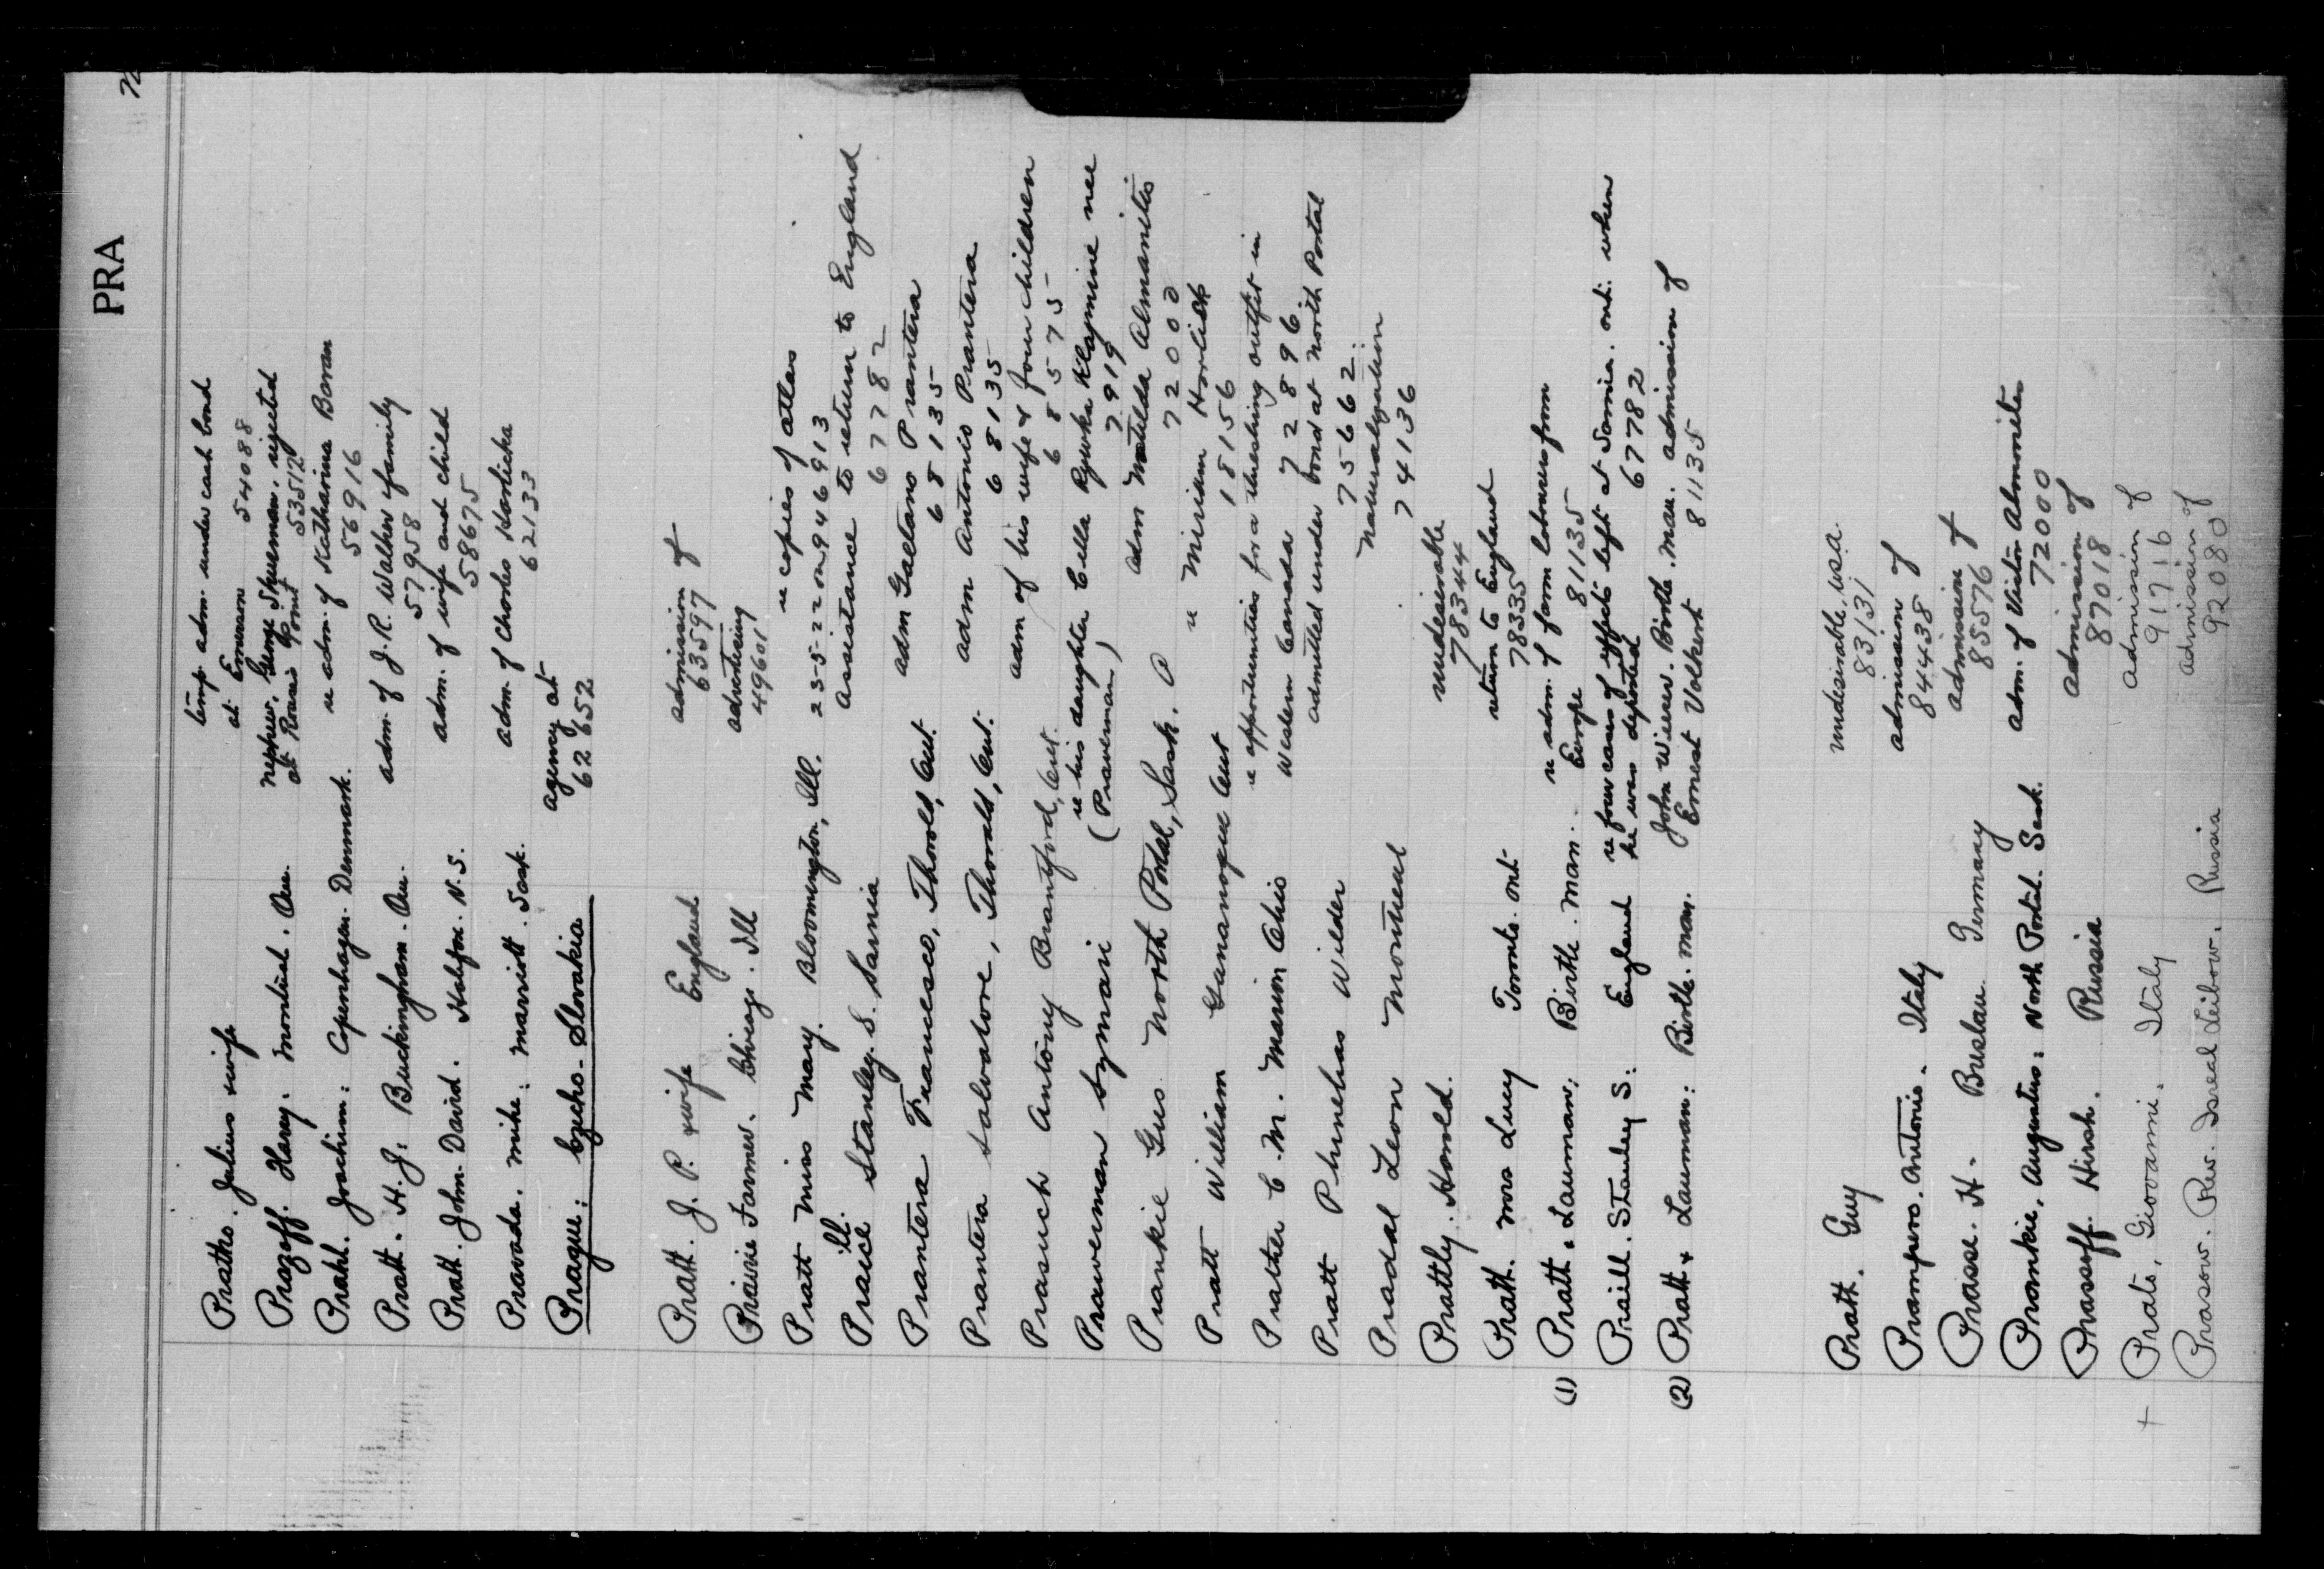 PRA
Prathe. Julius & wife temp. adm. under cash bond
at Emerson 54088
Prazoff. Harry. Montreal. Que. nephew, George Shueman, rejected
at Rouses Point 53512
Prahl. Joachim: Copenhagen. Denmark. re adm. of Katharina Bavan
56916
Pratt. H. J: Buckingham. Qu. adm. of J. R. Walker & family
57958
Pratt. John David. Halifax. N.S. adm. of wife and child
58675
Pravoda. Mike: Marriott. Sask. adm. of Charles Horlicka
62133
Prague: Czecho-Slovakia agency at
62652
Pratt. J. P. & wife England admission of
63597
Prairie Farmer. Chicago. Ill advertising
49601
Pratt Miss Mary. Bloomington, Ill. re copies of atlas
Ill. 23-5-22 on 946913
Praill Stanley. S. Sarnia assistance to return to England
67782
Prantera Francesco, Thorold, Ont. adm Gaetano Prantera
68135
Prantera Salvatore, Thorold, Ont. adm Antonio Prantera
68135
Prasuch Antony Brantford, Ont. adm of his wife & four children
68575
Prawerman Symari re his daughter Cella Rywka Klajmine nee
(Prawerman) 7919
Prankie Gus. North Portal, Sask. adm Matilda Almanitis
72000
Pratt William Gananoque Ont re Miriam
18156
Prather C. M. Marion Ohio re opportunities for a threshing outfit in
Western Canada 72896
Pratt Phinehas Wilder admitted under bond at North Portal
75662
Prasdal Leon Montreal Naturalization
74136
Prattly. Harold. undesirable
78344
Pratt. Mrs Lucy Toronto. Ont return to England
78335
(1) Pratt. & Lauman: Birtle. Man. re adm. of farm labourers from
Europe 81135
Praill. Stanley S: England re four cases of effects left at Sarnia. Ont. when
he was deported 67782
(2) Pratt & Lauman: Birtle. Man. John Wiewer. Birtle. Man. admission of
Ernest Volkert 81135
Pratt. Guy undesirable, U.S.A.
83131
Prampero. Antonio. Italy admission of
84438
Prasse. H. Breslau. Germany admission of
85576
Prankie, Augustus: North Portal. Sask. adm. of Victor Almonites
72000
Prassoff. Hirsh. Russia admission of
87018
+ Prato, Giovanni. Italy admission of
91716
Prasow. Rev. Isreal Leibow. Russia admission of
92080